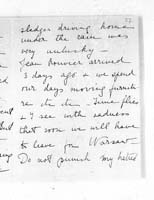 sledges driving home
under the [...] was
very unlucky -
Jean Bouvier arrived
3 days ago & we spend
our days moving furniture
etc etc - Time flies
& I see with sadness
that soon we will have
to leave for Warsaw
Do not punish my hated